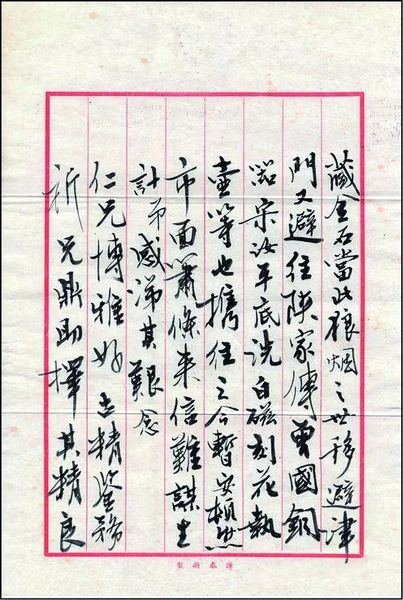 藏金石當此狼烟之世移避津
門又避往陝家傳曾國銅
器宋汝平底洗白磁刻花執
壺等也携往之今暫安頓然
市面蕭條來信難謀生
計而感涕其艱念
仁兄博雅好古精鉴務
祈兄鼎助擇其精良